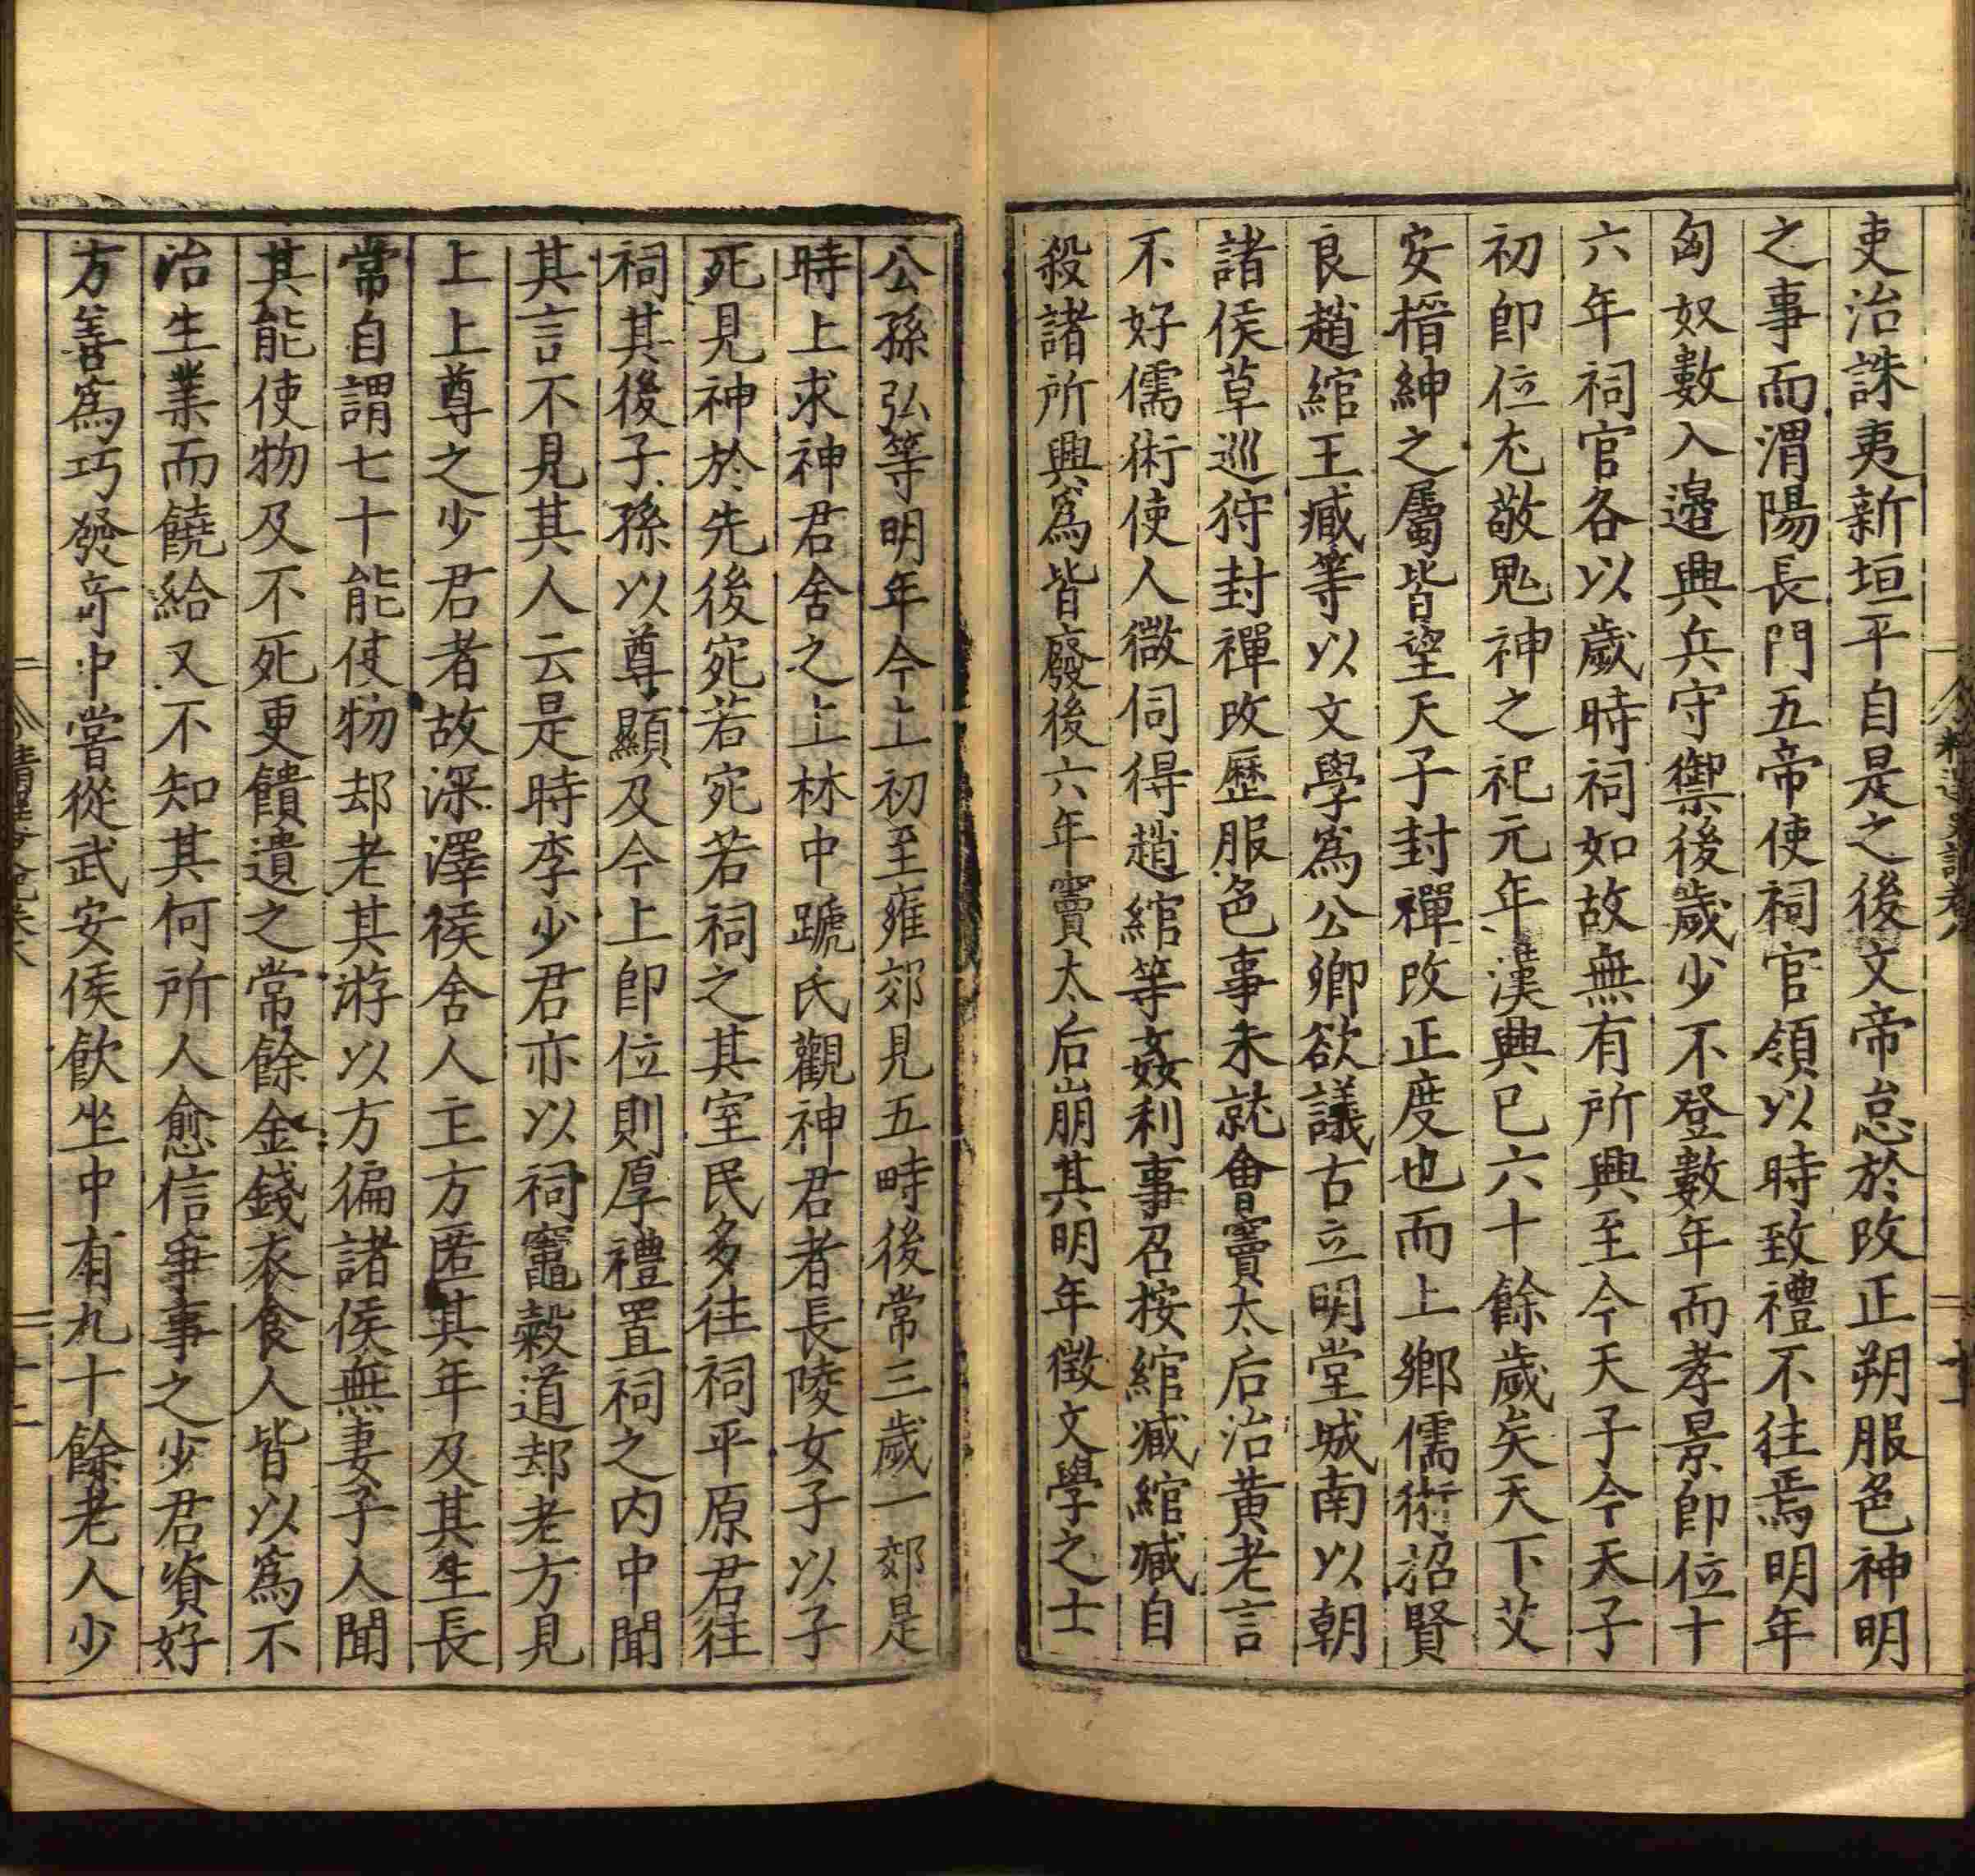 吏治誅夷新垣平自是之後文帝怠於改正朔服色神明
之事而渭陽長門五帝使祠官領以時致禮不往焉明年
匈奴數入邉興兵守禦後歲少不登數年而孝景卽位十
六年祠官各以歲時祠如故無有所興至今天子今天子
初卽位尤敬鬼神之祀元年漢興已六十餘歲矣天下艾
安搢紳之屬皆望天子封禪改正度也而上鄉儒術招賢
良趙綰王臧等以文學爲公卿欲議古立明堂城南以朝
諸侯草巡狩封禪改歷服色事未就會竇太后治黃老言
不好儒術使人微伺得趙綰等姦利事召按綰臧綰臧自
殺諸所興爲皆廢後六年竇太后崩其明年徵文學之士
公孫弘等明年今上初至雍郊見五畤後常三歲一郊是
時上求神君舍之上林中蹏氏觀神君者長陵女子以子
死見神於先後宛若宛若祠之其室民多往祠平原君往
祠其後子孫以尊顯及今上卽位則厚禮置祠之内中聞
其言不見其人云是時李少君亦以祠竈穀道却老方見
上上尊之少君者故深澤侯舍人主方匿其年及其生長
常自謂七十能使物却老其游以方徧諸侯無妻子人聞
其能使物及不死更饋遺之常餘金錢衣食人皆以爲不
治生業而饒給又不知其何所人愈信爭事之少君資好
方善爲巧發奇中嘗從武安侯飲坐中有九十餘老人少